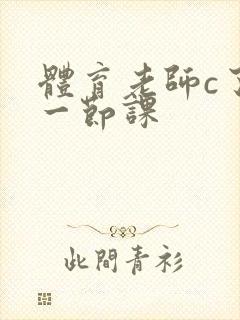 體育老師c了
一節課
此間青衫